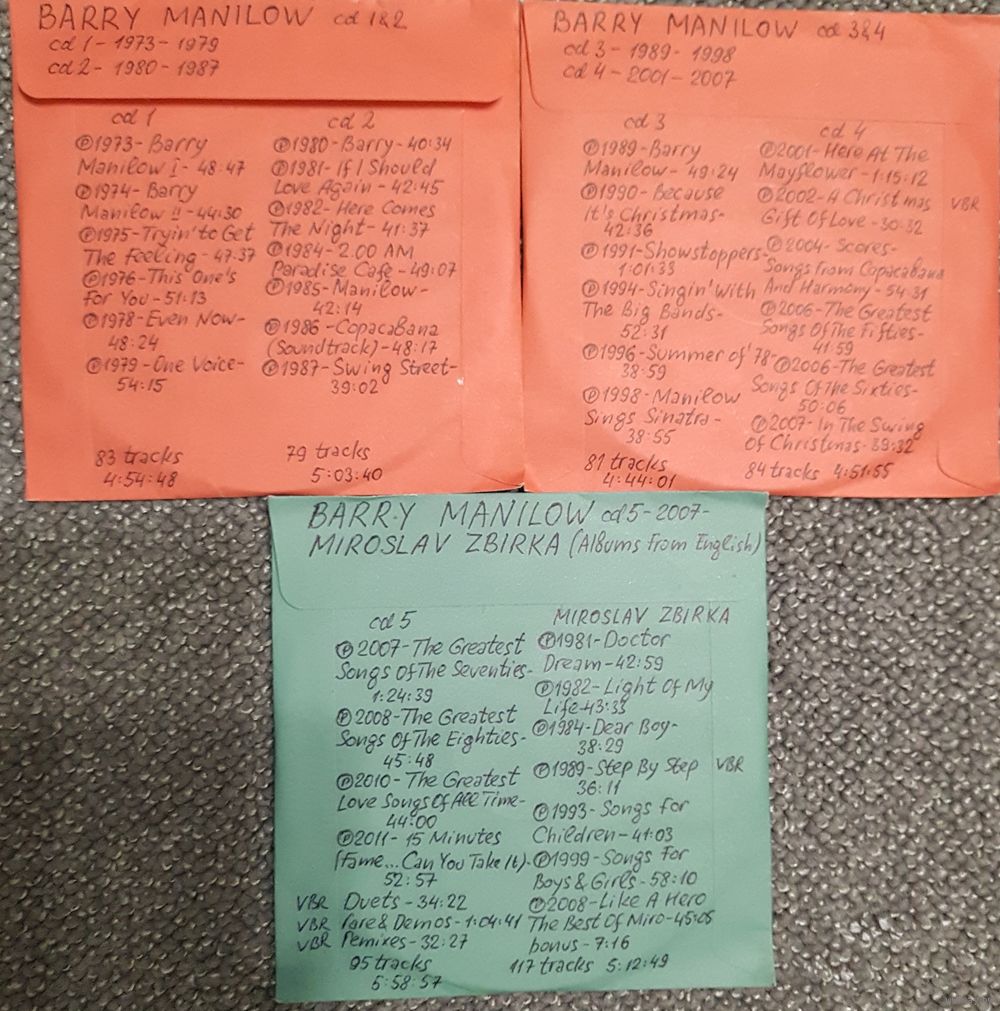 BARRY MANILOW cd 1&2
cd 1 - 1973 - 1979
cd 2 - 1980 - 1987
cd 1
Ⓟ1973-Barry
Manilow I - 48:47
Ⓟ1974-Barry
Manilow II - 44:30
Ⓟ1975-Tryin' to Get
The Feeling - 47:37
Ⓟ1976-This One's
For You - 51:13
Ⓟ1978-Even Now-
48:24
Ⓟ1979-One Voice-
54:15
83 tracks
4:54:48
cd 2
Ⓟ1980-Barry - 40:34
Ⓟ1981-If I Should
Love Again - 42:45
Ⓟ1982-Here Comes
The Night - 41:37
Ⓟ1984-2.00 AM
Paradise Cafe - 49:07
Ⓟ1985-Manilow-
42:14
Ⓟ1986-Copacabana
(Soundtrack) - 48:17
Ⓟ1987-Swing Street-
39:02
79 tracks
5:03:40
BARRY MANILOW cd 3&4
cd 3 - 1989 - 1998
cd 4 - 2001 - 2007
cd 3
Ⓟ1989-Barry
Manilow - 49:24
Ⓟ1990-Because
It's Christmas-
42:36
Ⓟ1991-Showstoppers-
1:01:33
Ⓟ1994-Singin' with
The Big Bands-
52:31
Ⓟ1996-Summer of '78-
38:59
Ⓟ1998-Manilow
Sings Sinatra-
38:55
81 tracks
4:44:01
cd 4
Ⓟ2001-Here At The
Mayflower - 1:15:12
Ⓟ2002-A Christmas VBR
Gift Of Love - 30:32
Ⓟ2004-Scores-
Songs from Copacabana
And Harmony - 54:31
Ⓟ2006-The Greatest
Songs Of The Fifties-
41:59
Ⓟ2006-The Greatest
Songs Of The Sixties-
50:06
Ⓟ2007-In The Swing
Of Christmas - 39:32
84 tracks 4:51:55
BARRY MANILOW cd 5 - 2007-
MIROSLAV ZBIRKA (Albums from English)
cd 5
Ⓟ2007-The Greatest
Songs Of The Seventies-
1:24:39
Ⓟ2008-The Greatest
Songs Of The Eighties-
45:48
Ⓟ2010-The Greatest
Love Songs Of All Time-
44:00
Ⓟ2011-15 Minutes
(Fame...Can You Take It)-
52:57
VBR Duets - 34:22
VBR Rare & Demos - 1:04:41
VBR Remixes - 32:27
95 tracks
5:58:57
MIROSLAV ZBIRKA
Ⓟ1981-Doctor
Dream - 42:59
Ⓟ1982-Light Of My
Life - 43:33
Ⓟ1984-Dear Boy-
38:29
Ⓟ1989-Step By Step VBR
36:11
Ⓟ1993-Songs for
Children - 41:03
Ⓟ1999-Songs For
Boys & Girls - 58:10
Ⓟ2008-Like A Hero
The Best Of Miro - 45:05
bonus - 7:16
117 tracks 5:12:49